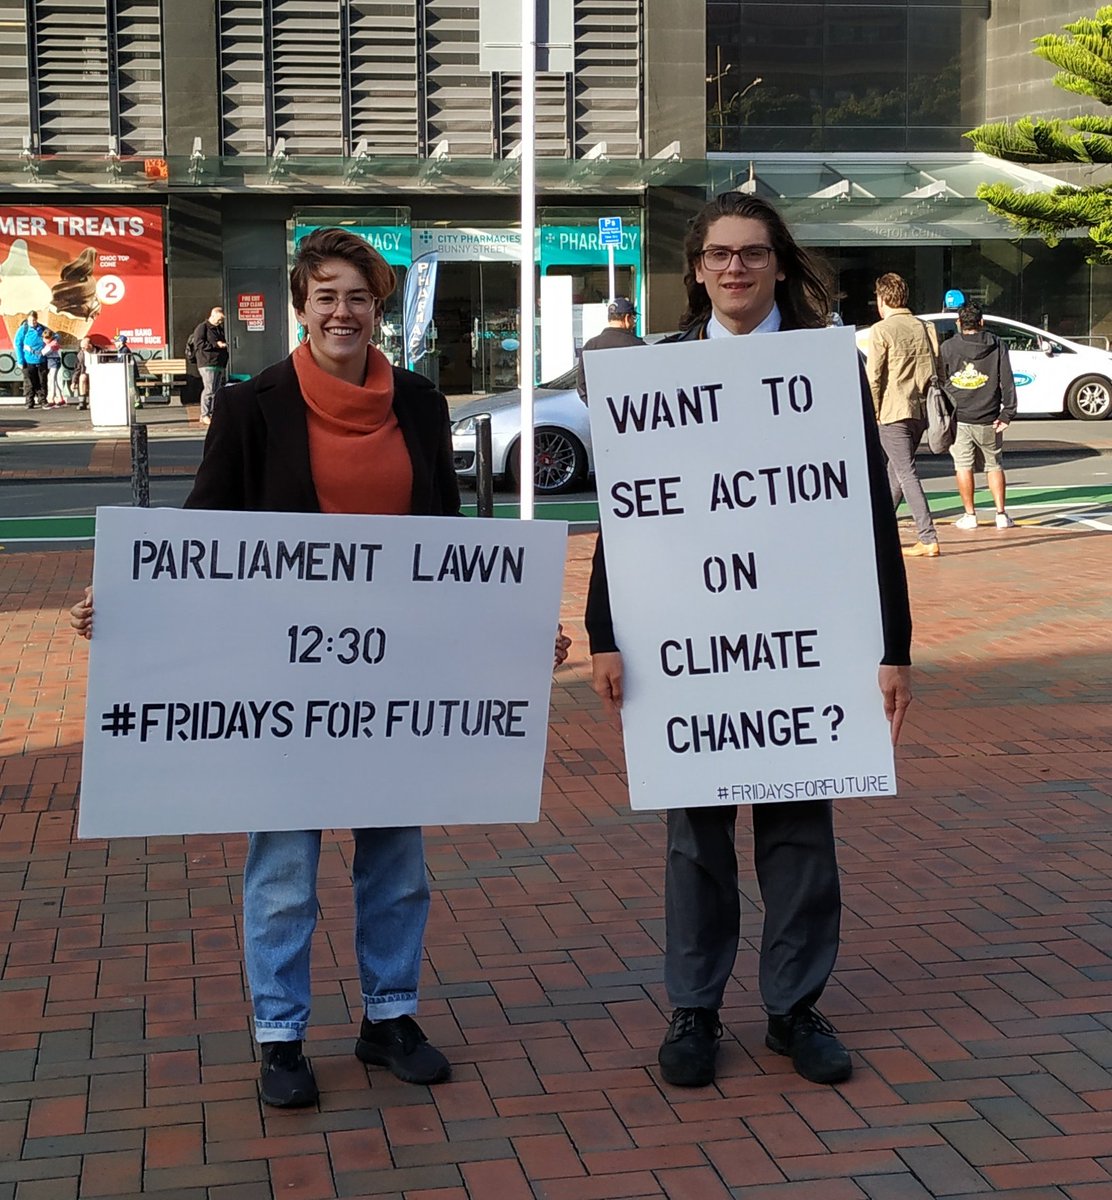 MER TREATS
CHOC TOP
CONE
2
YOUR BUCK
FIRE EXIT
KEEP CLEAR
PHARMACY
CITY PHARMACIES
BUNNY STREET
PHARMACY
PARLIAMENT LAWN
12:30
#FRIDAYS FOR FUTURE
WANT TO
SEE ACTION
ON
CLIMATE
CHANGE?
#FRIDAYSFORFUTURE